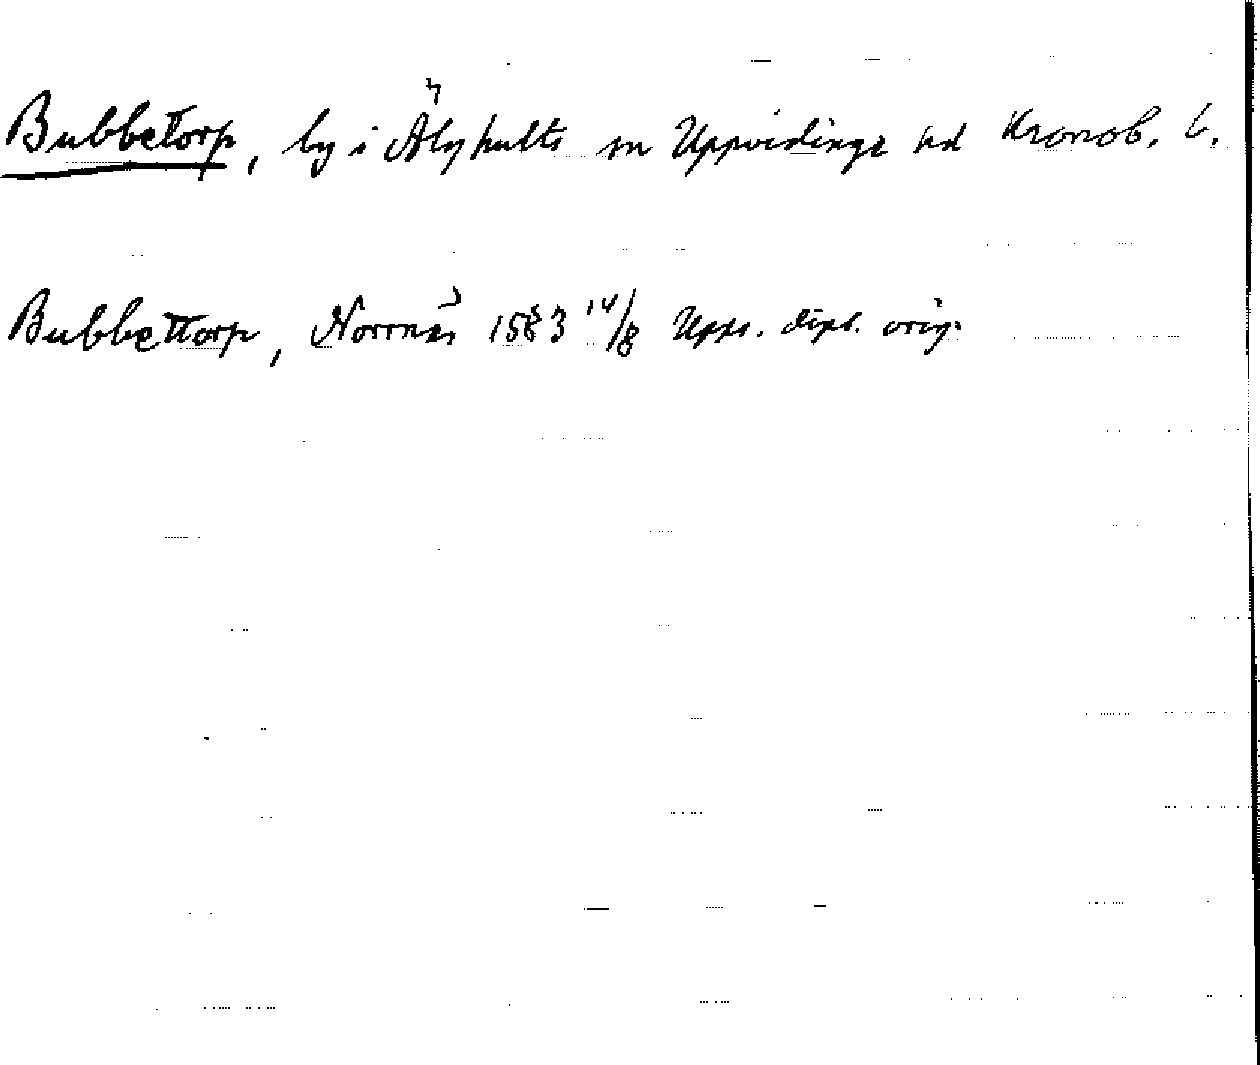 Bubbetorp, by i Älghults sn Uppvidinge hd Kronob. l.
Bubbettorp, Norrnäs 1583 14/8 Upps. dipl. orig.